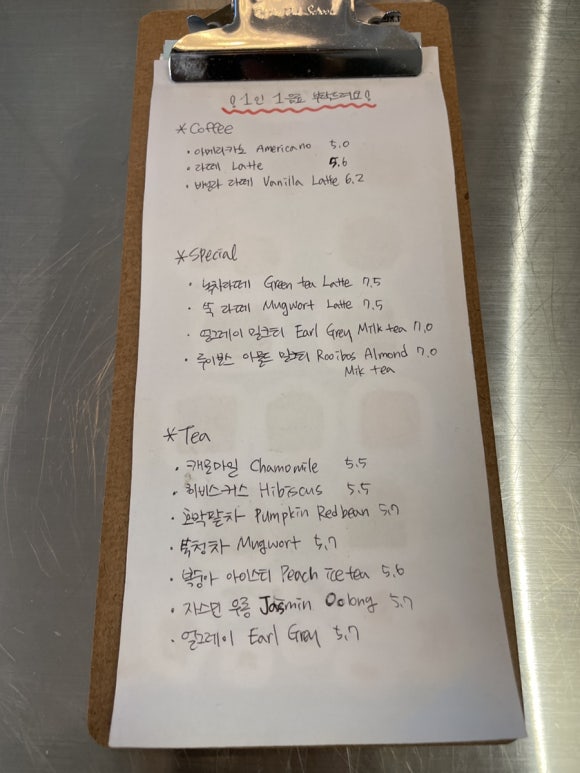 ! 1인 1음료 부탁드려요!
*Coffee
· 아메리카노 Americano 5.0
· 라떼 Latte 5.6
· 바닐라 라떼 Vanilla Latte 6.2
*Special
· 녹차라떼 Green tea Latte 7.5
· 쑥 라떼 Mugwort Latte 7.5
· 얼그레이 밀크티 Earl Grey Milk tea 7.0
· 루이보스 아몬드 밀크티 Rooibos Almond 7.0
Mik tea
*Tea
· 캐모마일 Chamomile 5.5
· 히비스커스 Hibiscus 5.5
· 호박팥차 Pumpkin Redbean 5.7
· 쑥청차 Mugwort 5.7
· 복숭아 아이스티 Peach ice tea 5.6
· 자스민 우롱 Jasmin Oolong 5.7
· 얼그레이 Earl Grey 5.7